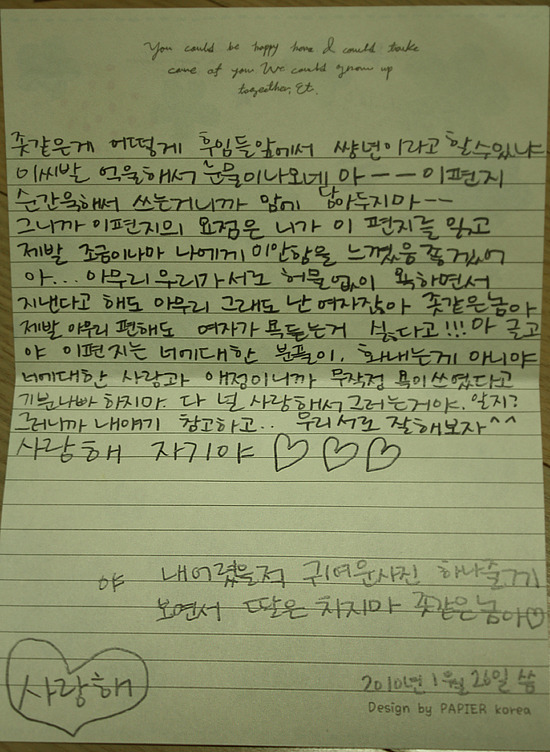 You could be happy here I could take
care of you We could grow up
together, Et.
좆같은게 어떻게 후임들앞에서 썅년이라고 할수있냐
이씨발 억울해서 눈물이나오네 아ーー이편지
순간욱해서 쓰는거니까 맘에 담아두지마~~
그니까 이편지의 요점은 니가 이 편지를 읽고
제발 조금이나마 나에게 미안함을 느꼈음 좋겠어
아... 아무리우리가서로 허물없이 욕하면서
지낸다고 해도 아무리 그래도 난 여자잖아 좆같은놈아
제발 아무리 편해도 여자가 욕듣는거 싫다고!!! 아 글고
야 이편지는 너에대한 분풀이, 화내는게 아니야
너에대한 사랑과 애정이니까 무작정 욕이쓰였다고
기분나빠 하지마. 다 널 사랑해서그러는거야. 알지?
그러니까 내얘기 참고하고.. 우리서로 잘해보자^^
사랑해 자기야 ♡♡♡
야 내어렸을적 귀여운사진 하나줄게
보면서 딸은 치지마 좆같은놈아♡
사랑해
2010년 1월 26일 씀
Design by PAPIER korea